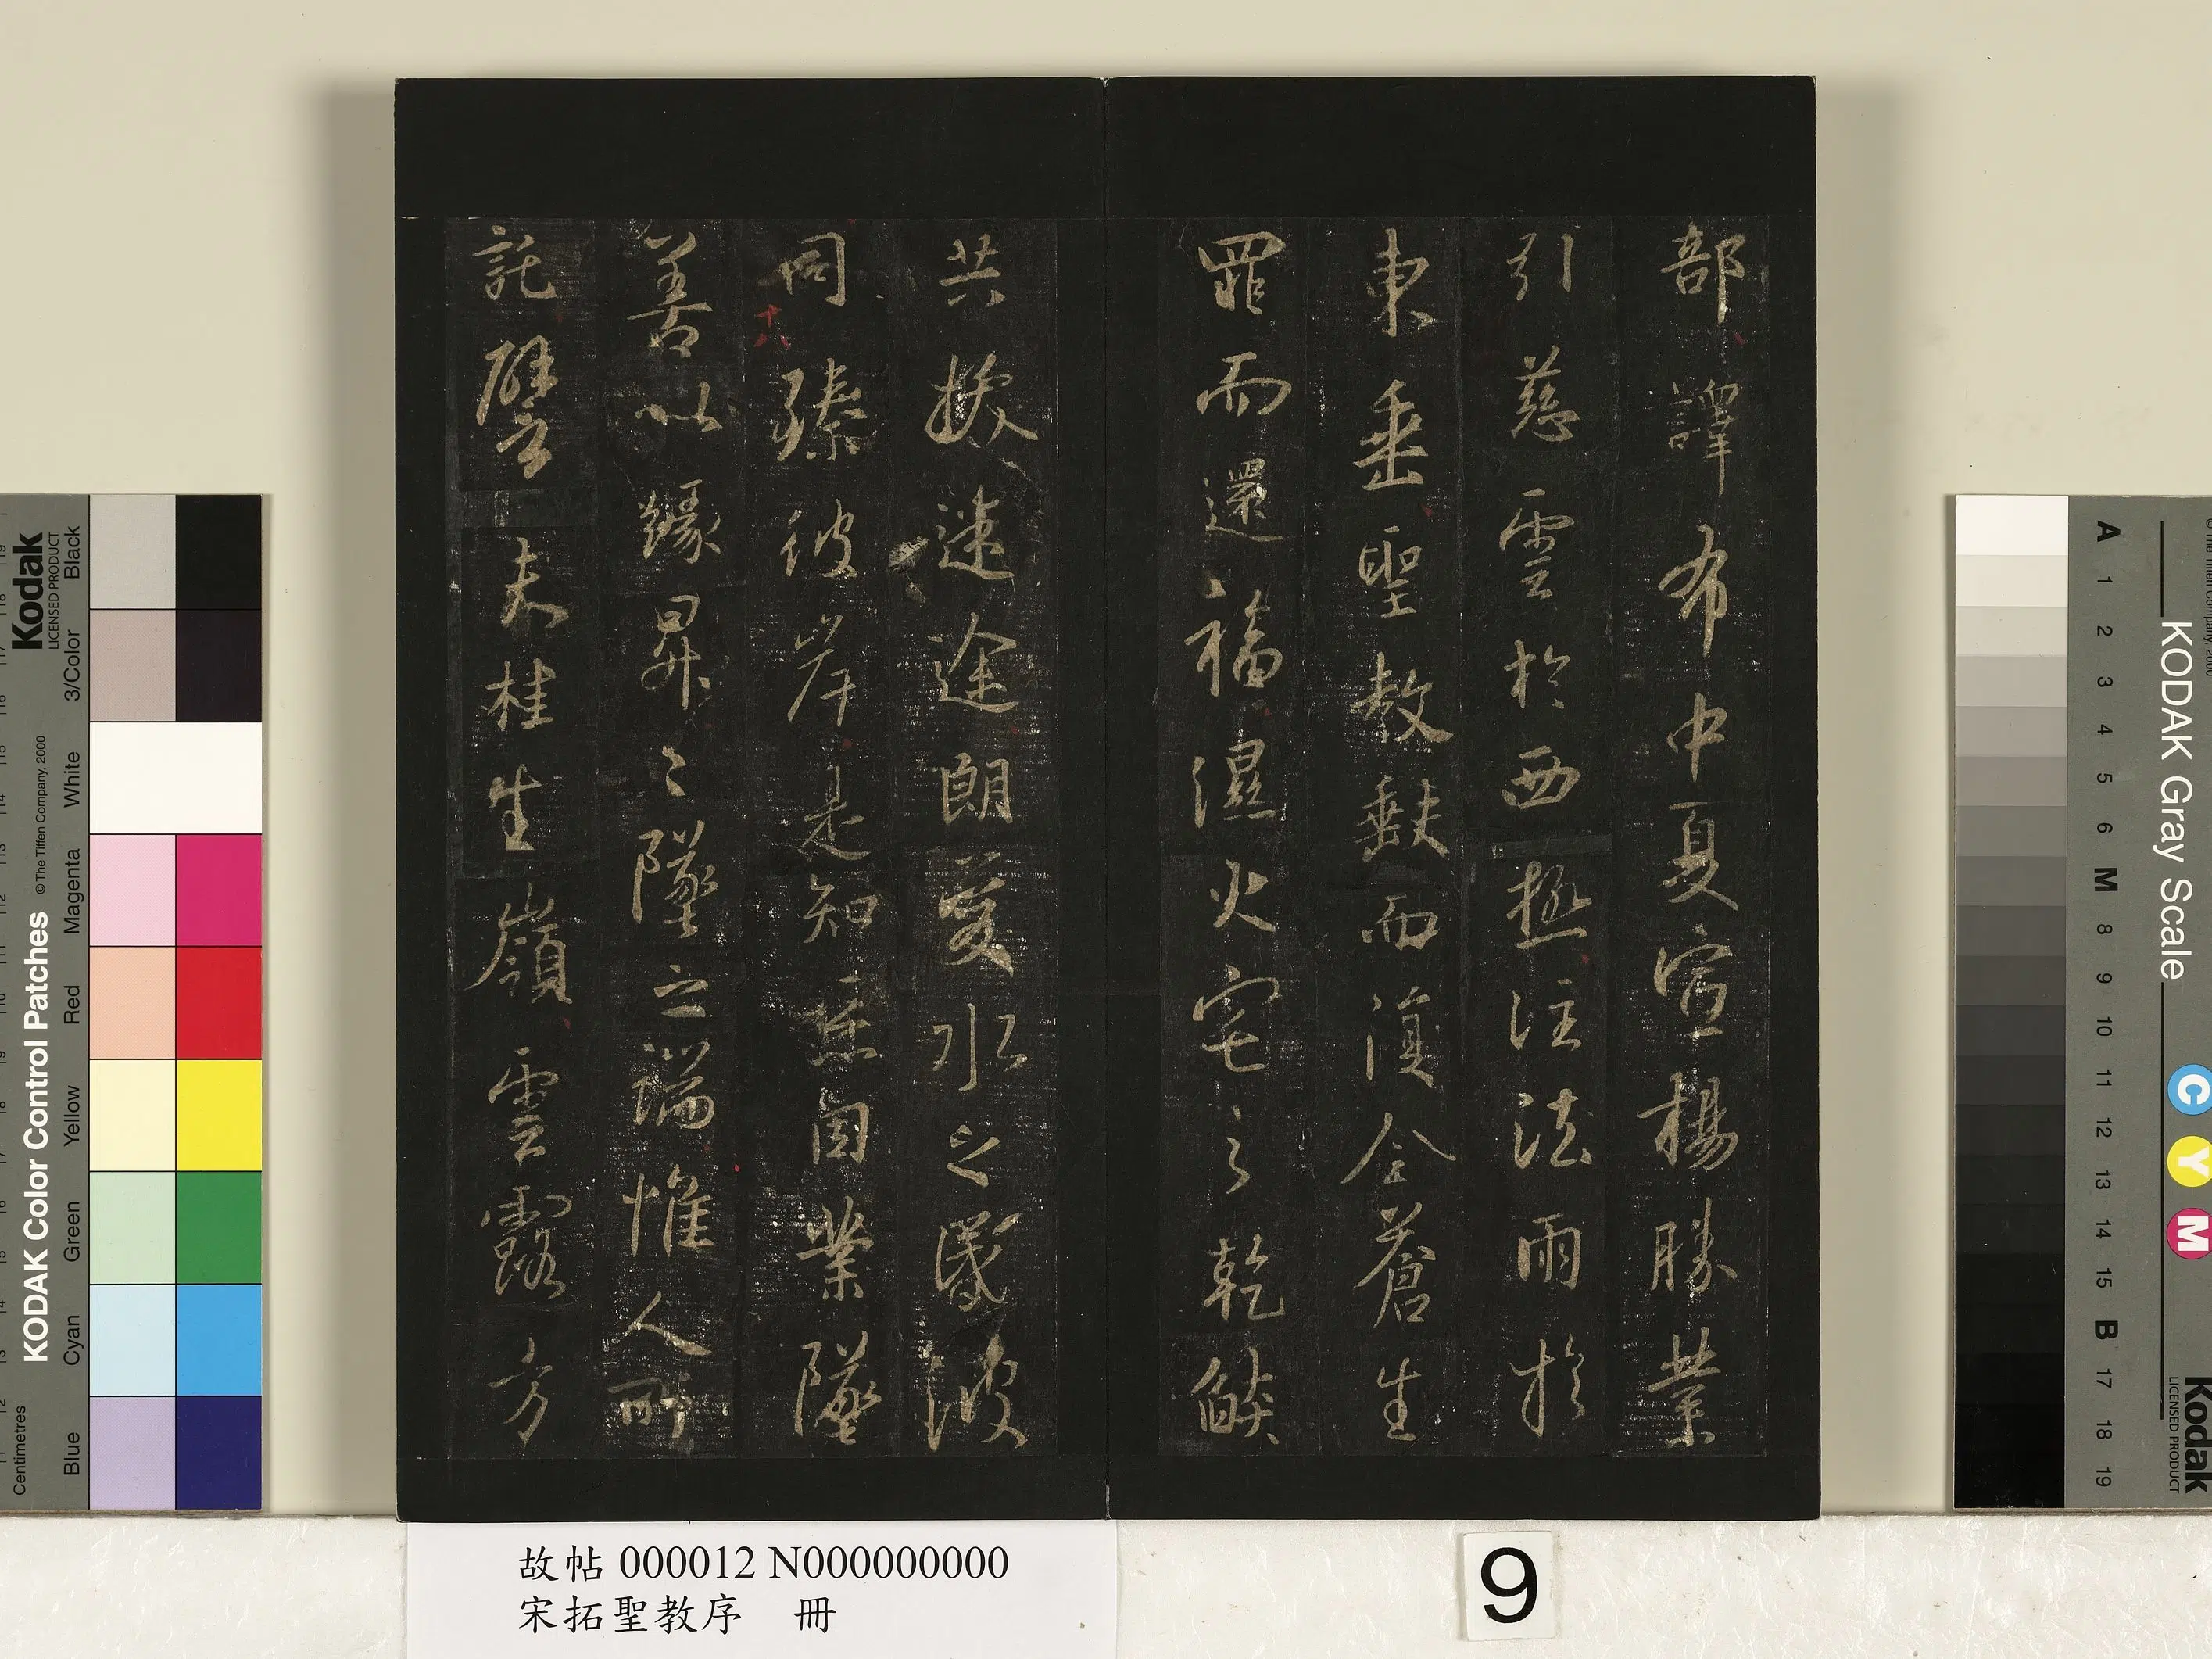 部譯布中夏宣揚勝業
引慈雲於西極注法雨於
東垂聖教缺而復全蒼生
罪而還福濕火宅之乾燄
共拔迷途朗愛水之昏波
同臻彼岸是知惡因業墜
善以緣昇々墜之端惟人所
託譬夫桂生嶺雲露方
十八
故帖 000012 N000000000
宋拓聖教序 冊
9
KODAK Color Control Patches
© The Tiffen Company, 2000
Kodak
LICENSED PRODUCT
Centimetres
Blue
Cyan
Green
Yellow
Magenta
Red
White
3/Color
Black
KODAK Gray Scale
Kodak
LICENSED PRODUCT
A 1 2 3 4 5 6 M 8 9 10 11 12 13 14 15 B 17 18 19
C Y M